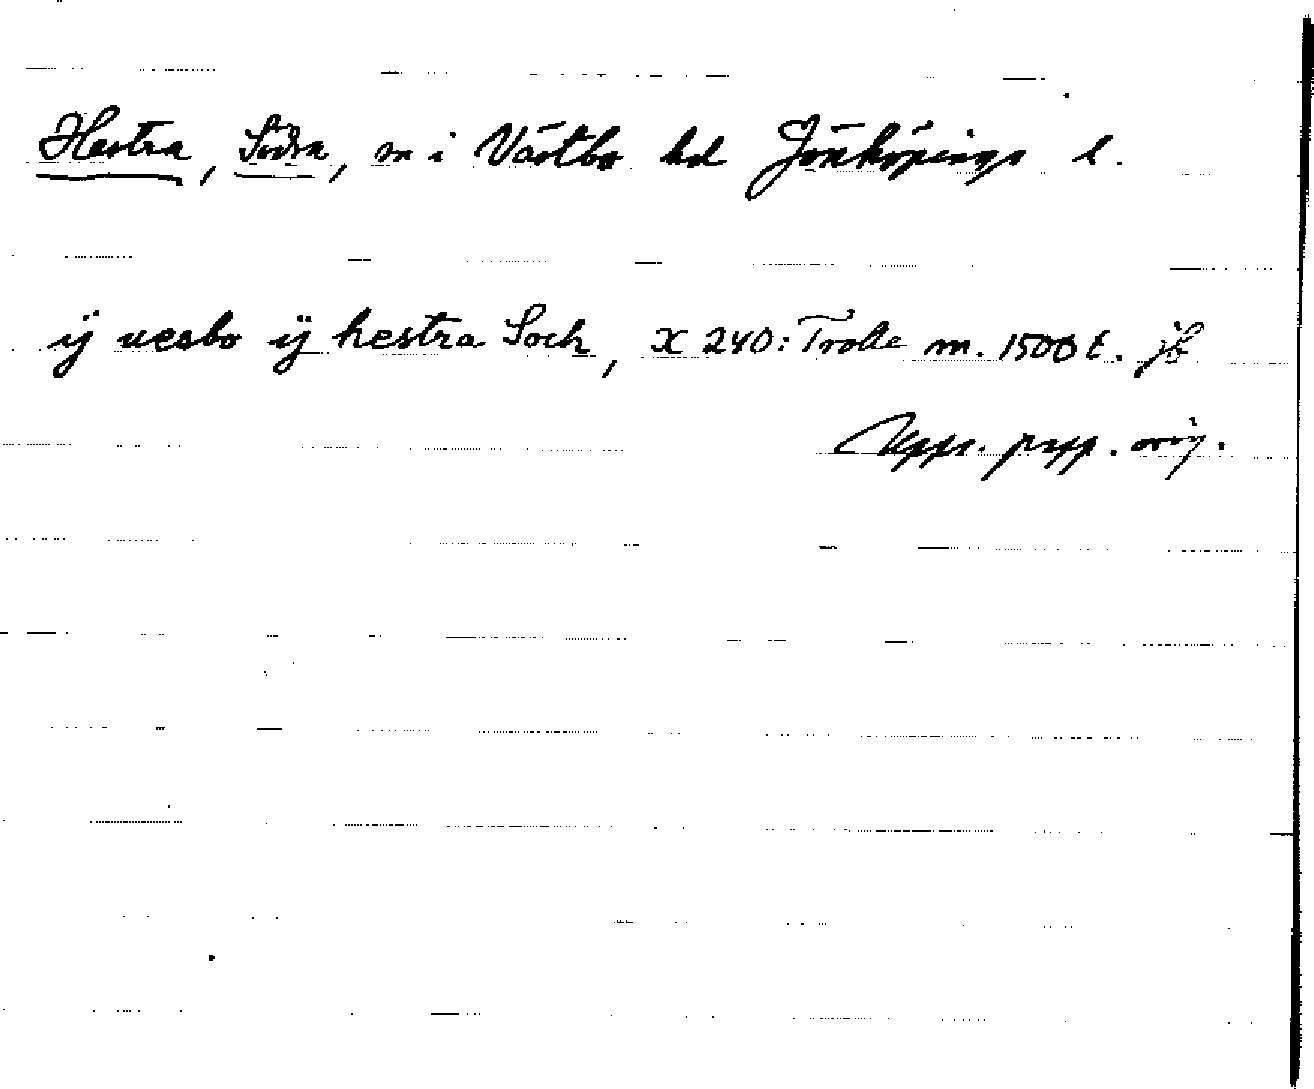 Hestra, Södra, m i Västbo hd Jönköpings l.
ij uesbo ij hestra Soch, X 240: Trolle m. 1500 t. jb
Upps. papp. orig.